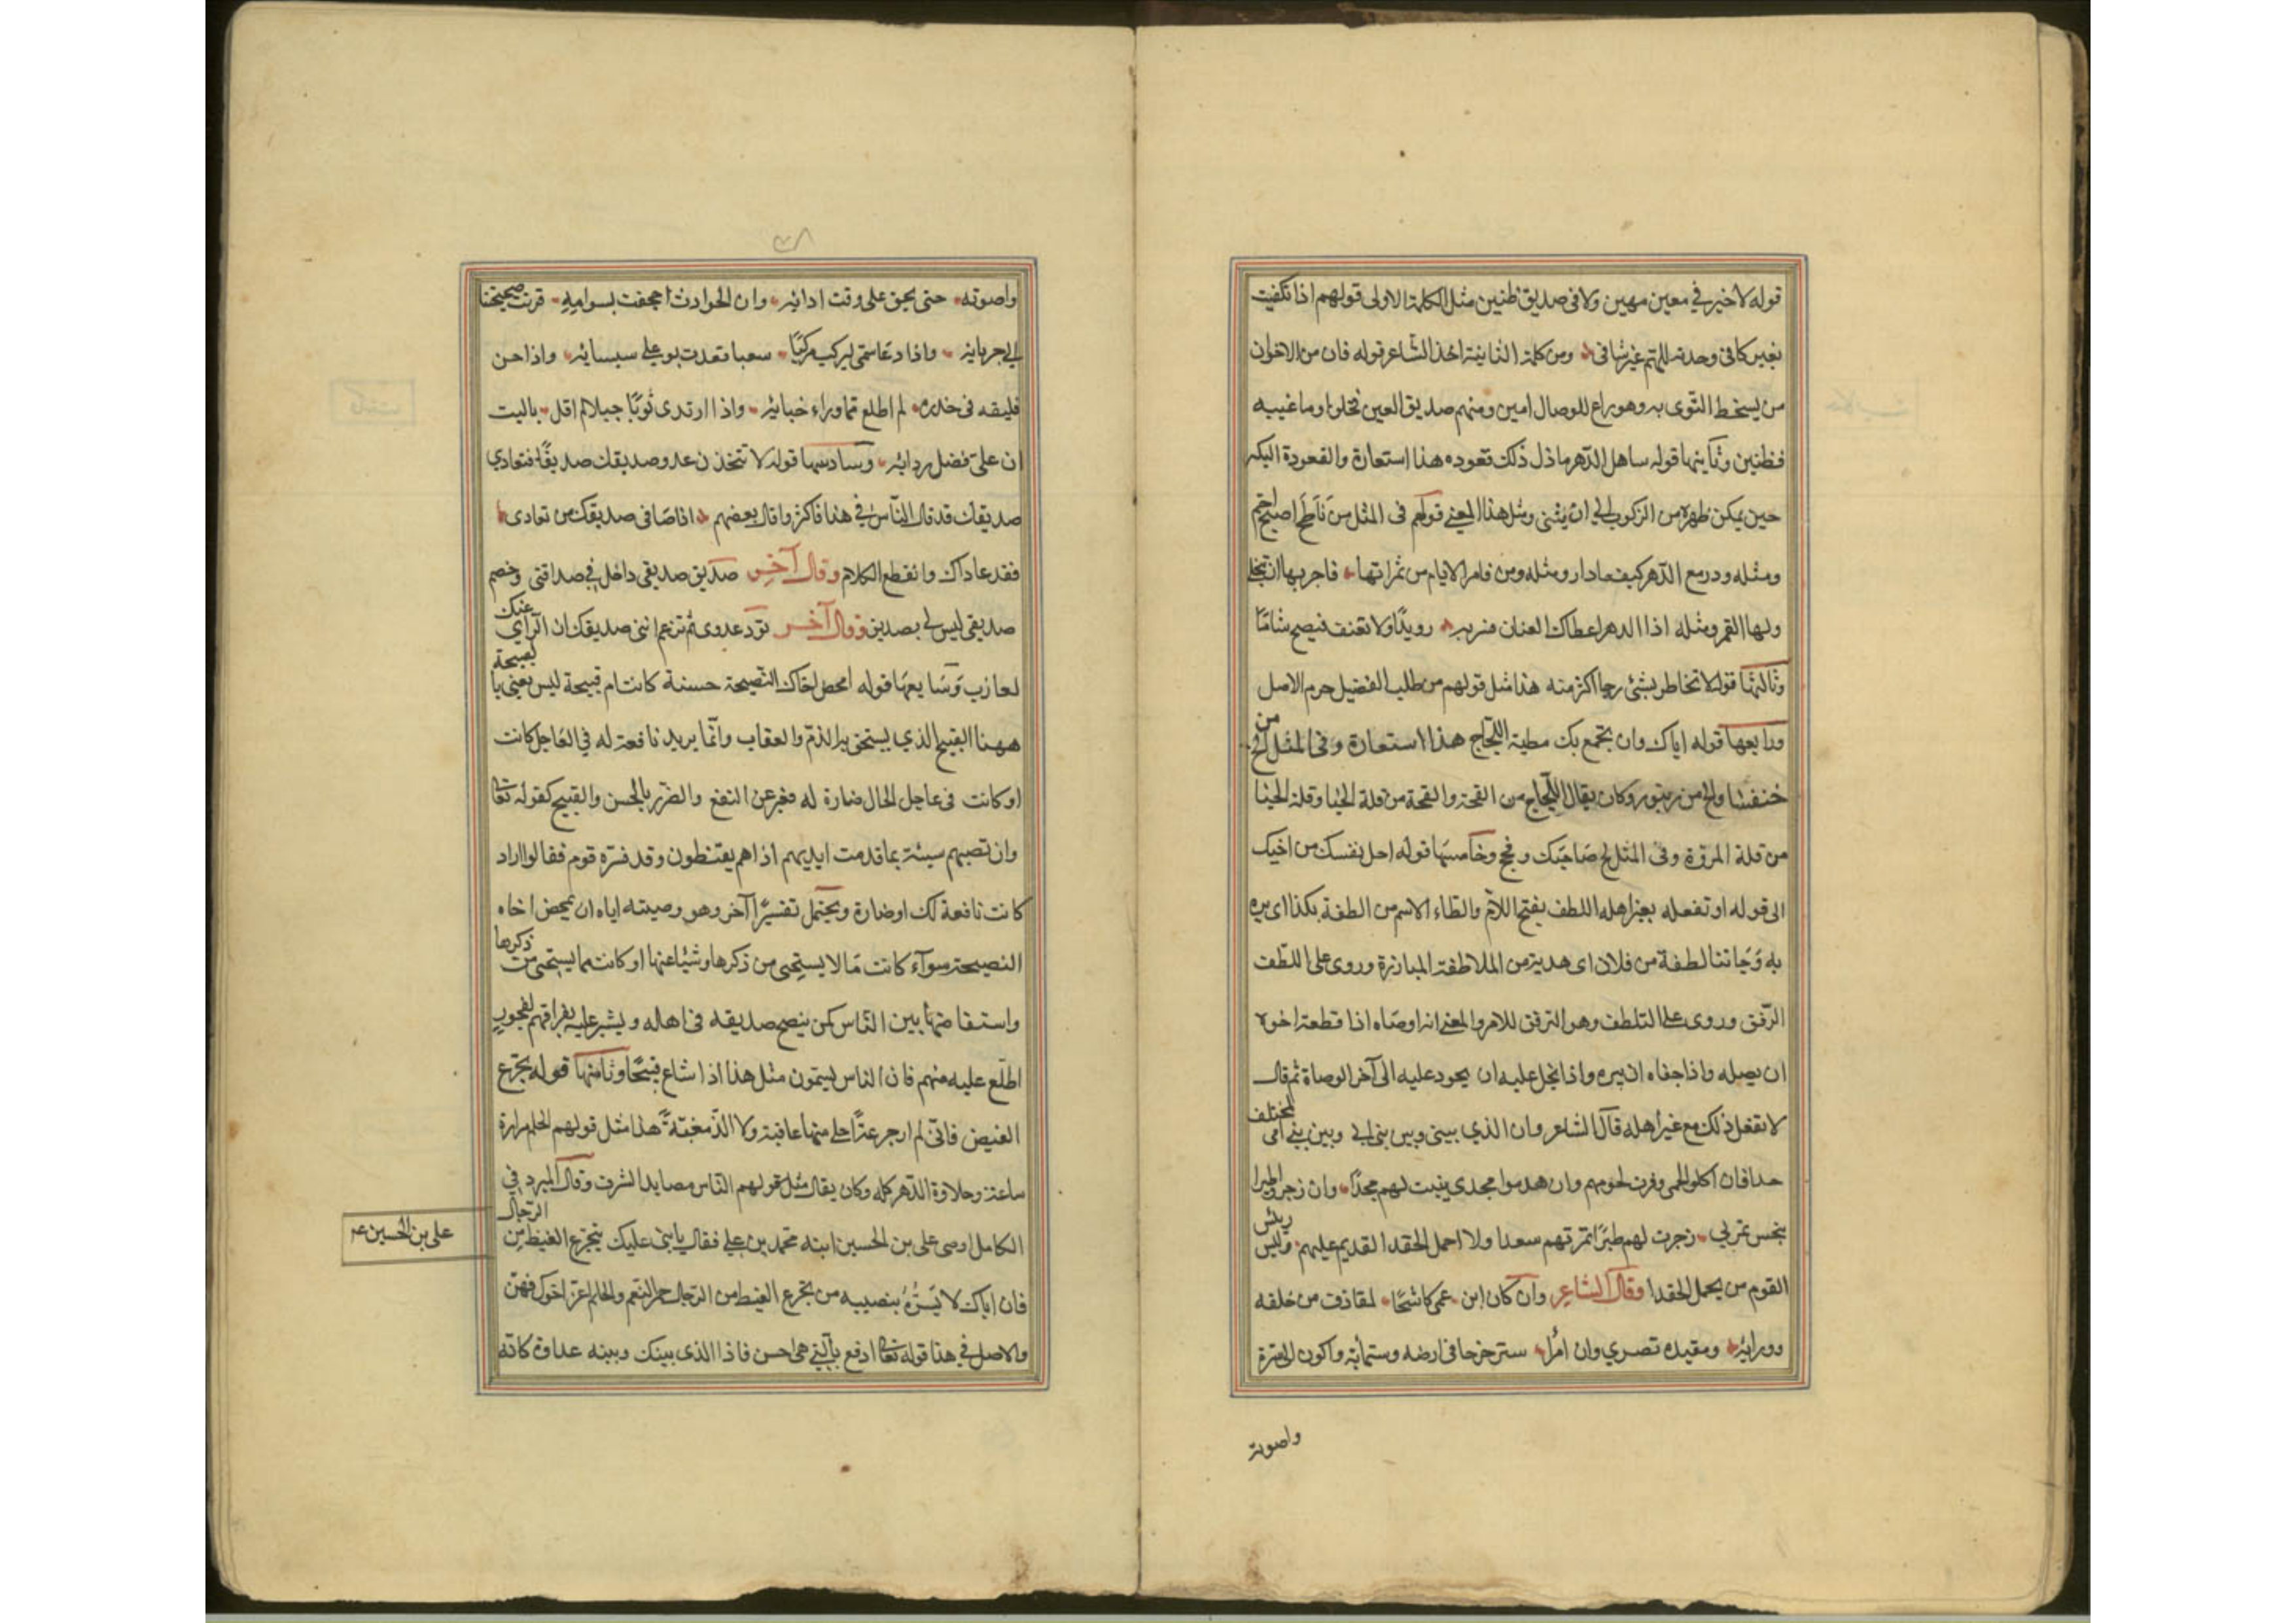 قوله لا خير في معين مهين ولا في صديق ظنين مثل الكلمة الاولى قولهم اذا تكفيت
بغير كافى وجدته للهم غير شافى ومن كلمة الثانية اخذ الشاعر قوله فان من الاخوان
من يسخط النوى به وهو راع للوصال امين ومنهم صديق العين فحلوا وما غيبه
فظنين وثانيها قوله ساهل الدهر ما ذل ذلك قعوده هذا استعارة والقعودة البكر
حين يمكن ظهره من الركوب الى ان يثنى ومثل هذا المعنى قولهم فى المثل من ناطح اصبح اجم
ومثله ودر مع الدهر كيف ما دار ومثله ومن قامر الايام من ثمراتها فاجر بها ان تنجلى
ولها القمر ومثله اذا الدهر اعطاك العنان فسر به رويدًا ولا تعنف فيصبح شامتًا
وثالثها قوله لا تخاطر بشئ رجا اكثر منه هذا مثل قولهم من طلب الفضيل حرم الاصل
ورابعها قوله اياك وان تجمع بك مطية اللجاج هذا استعارة وفى المثل الج من
خنفسا والج من زنبور وكان يقال اللجاج من القحة والقحة من قلة الحيا وقلة الحيا
من قلة المروة وفى المثل لج صاحبك وفج وخامسها قوله احمل نفسك من اخيك
الى قوله او تفعله بغير اهله اللطف بفتح اللام والطاء الاسم من الطفة بكذا اى بره
به وجاتنا لطفة من فلان اى هدية من الملاطفة المبارزة وروى على اللطف
الرفق وروى على التلطف وهو الترفق للامر والمعنى انه اوصاه اذا قطعه اخوه
ان يصله واذا جفاه ان يبره واذا بخل عليه ان يجود عليه الى آخر الوصاة ثم قال
لا تفعل ذلك مع غير اهله قال الشاعر وان الذي بينى وبين بنى ابى وبين بني امى لمختلف
حدا فان اكلوا لحمى وفرت لحومهم وان هدموا مجدى بنيت لهم مجدًا وان زجروا طيرا
بنحس تمر بي زجرت لهم طيرًا تمر بهم سعدا ولا احمل الحقد القديم عليهم وليس رئيس
القوم من يحمل الحقدا وقال الشاعر وان كان ابن عمى كاشحًا لمقاذف من خلفه
وورائه ومفيده نصرى وان امرأ ستر حزحا فى ارضه وسمائه واكون الى سره
واصوته
٣٨
واصونه حتى يحق على وقت ادائه وان الحوادث اجحفت بسوامه قرنت صحيحتنا
الى جربائه واذا دعا سمى ليركب مركبًا صعبا قعدت به على سيسائه واذا حن
فليقه فى خدره لم اطلع مما وراء خبائه واذا ارتدى ثوبًا جبلا لم اقل باليت
ان على فضل ردائه وسادسها قوله لا تتخذن عدو صديقك صديقًا فتعادي
صديقك قد قال الناس في هذا فاكثروا قال بعضهم اذا صافى صديقك من تعادى
فقد عاداك وانقطع الكلام وقال آخر صديق صديقى داخل في صداقتى وخصم
صديقى ليس لي بصديق وقال آخر تود عدوى ثم تزعم اننى صديقك ان الراي عنك
لعازب وسابعها قوله امحض اخاك النصيحة حسنة كانت ام قبيحة ليس يعنى با لقبيحة
ههنا القبيح الذي يستحق به الذم والعقاب وانما يريد نافعة له في العاجل كانت
او كانت فى عاجل الحال ضارة له فعبر عن النفع والضرر بالحسن والقبيح كقوله تعالى
وان تصبهم سيئة بما قدمت ايديهم اذا هم يقنطون وقد فسره قوم فقالوا اراد
كانت نافعة لك او ضارة ويحتمل تفسيرًا آخر وهو وصيته اياه ان يمحض اخاه
النصيحة سوآء كانت مما لا يستحيى من ذكرها وشياعتها او كانت مما يستحيى من ذكرها
واستفاضتها بين الناس كمن ينصح صديقه فى اهله ويشير عليه بفراقهم لفجور
اطلع عليه منهم فان الناس يسمون مثل هذا اذا شاع قبيحًا وثامنها قوله تجرع
الغيض فانى لم ار جرعة احلى منها عاقبة ولا الذ مغبة هذا مثل قولهم الحلم مرارة
ساعة وحلاوة الدهر كله وكان يقال مثل قولهم الناس مصايد الشرف وقال المبرد في
الكامل اوصى على بن الحسين ابنه محمد بن علي فقال يا بنى عليك بتجرع الغيظ من الرجال
على بن الحسين عم
فان اباك لا يسره بنصيبه من تجرع الغيظ من الرجال حمر النعم والحلم اعز اخوك فهن
والاصل في هذا قوله تعالى ادفع بالتي هي احسن فاذا الذى بينك وبينه عداوة كانه